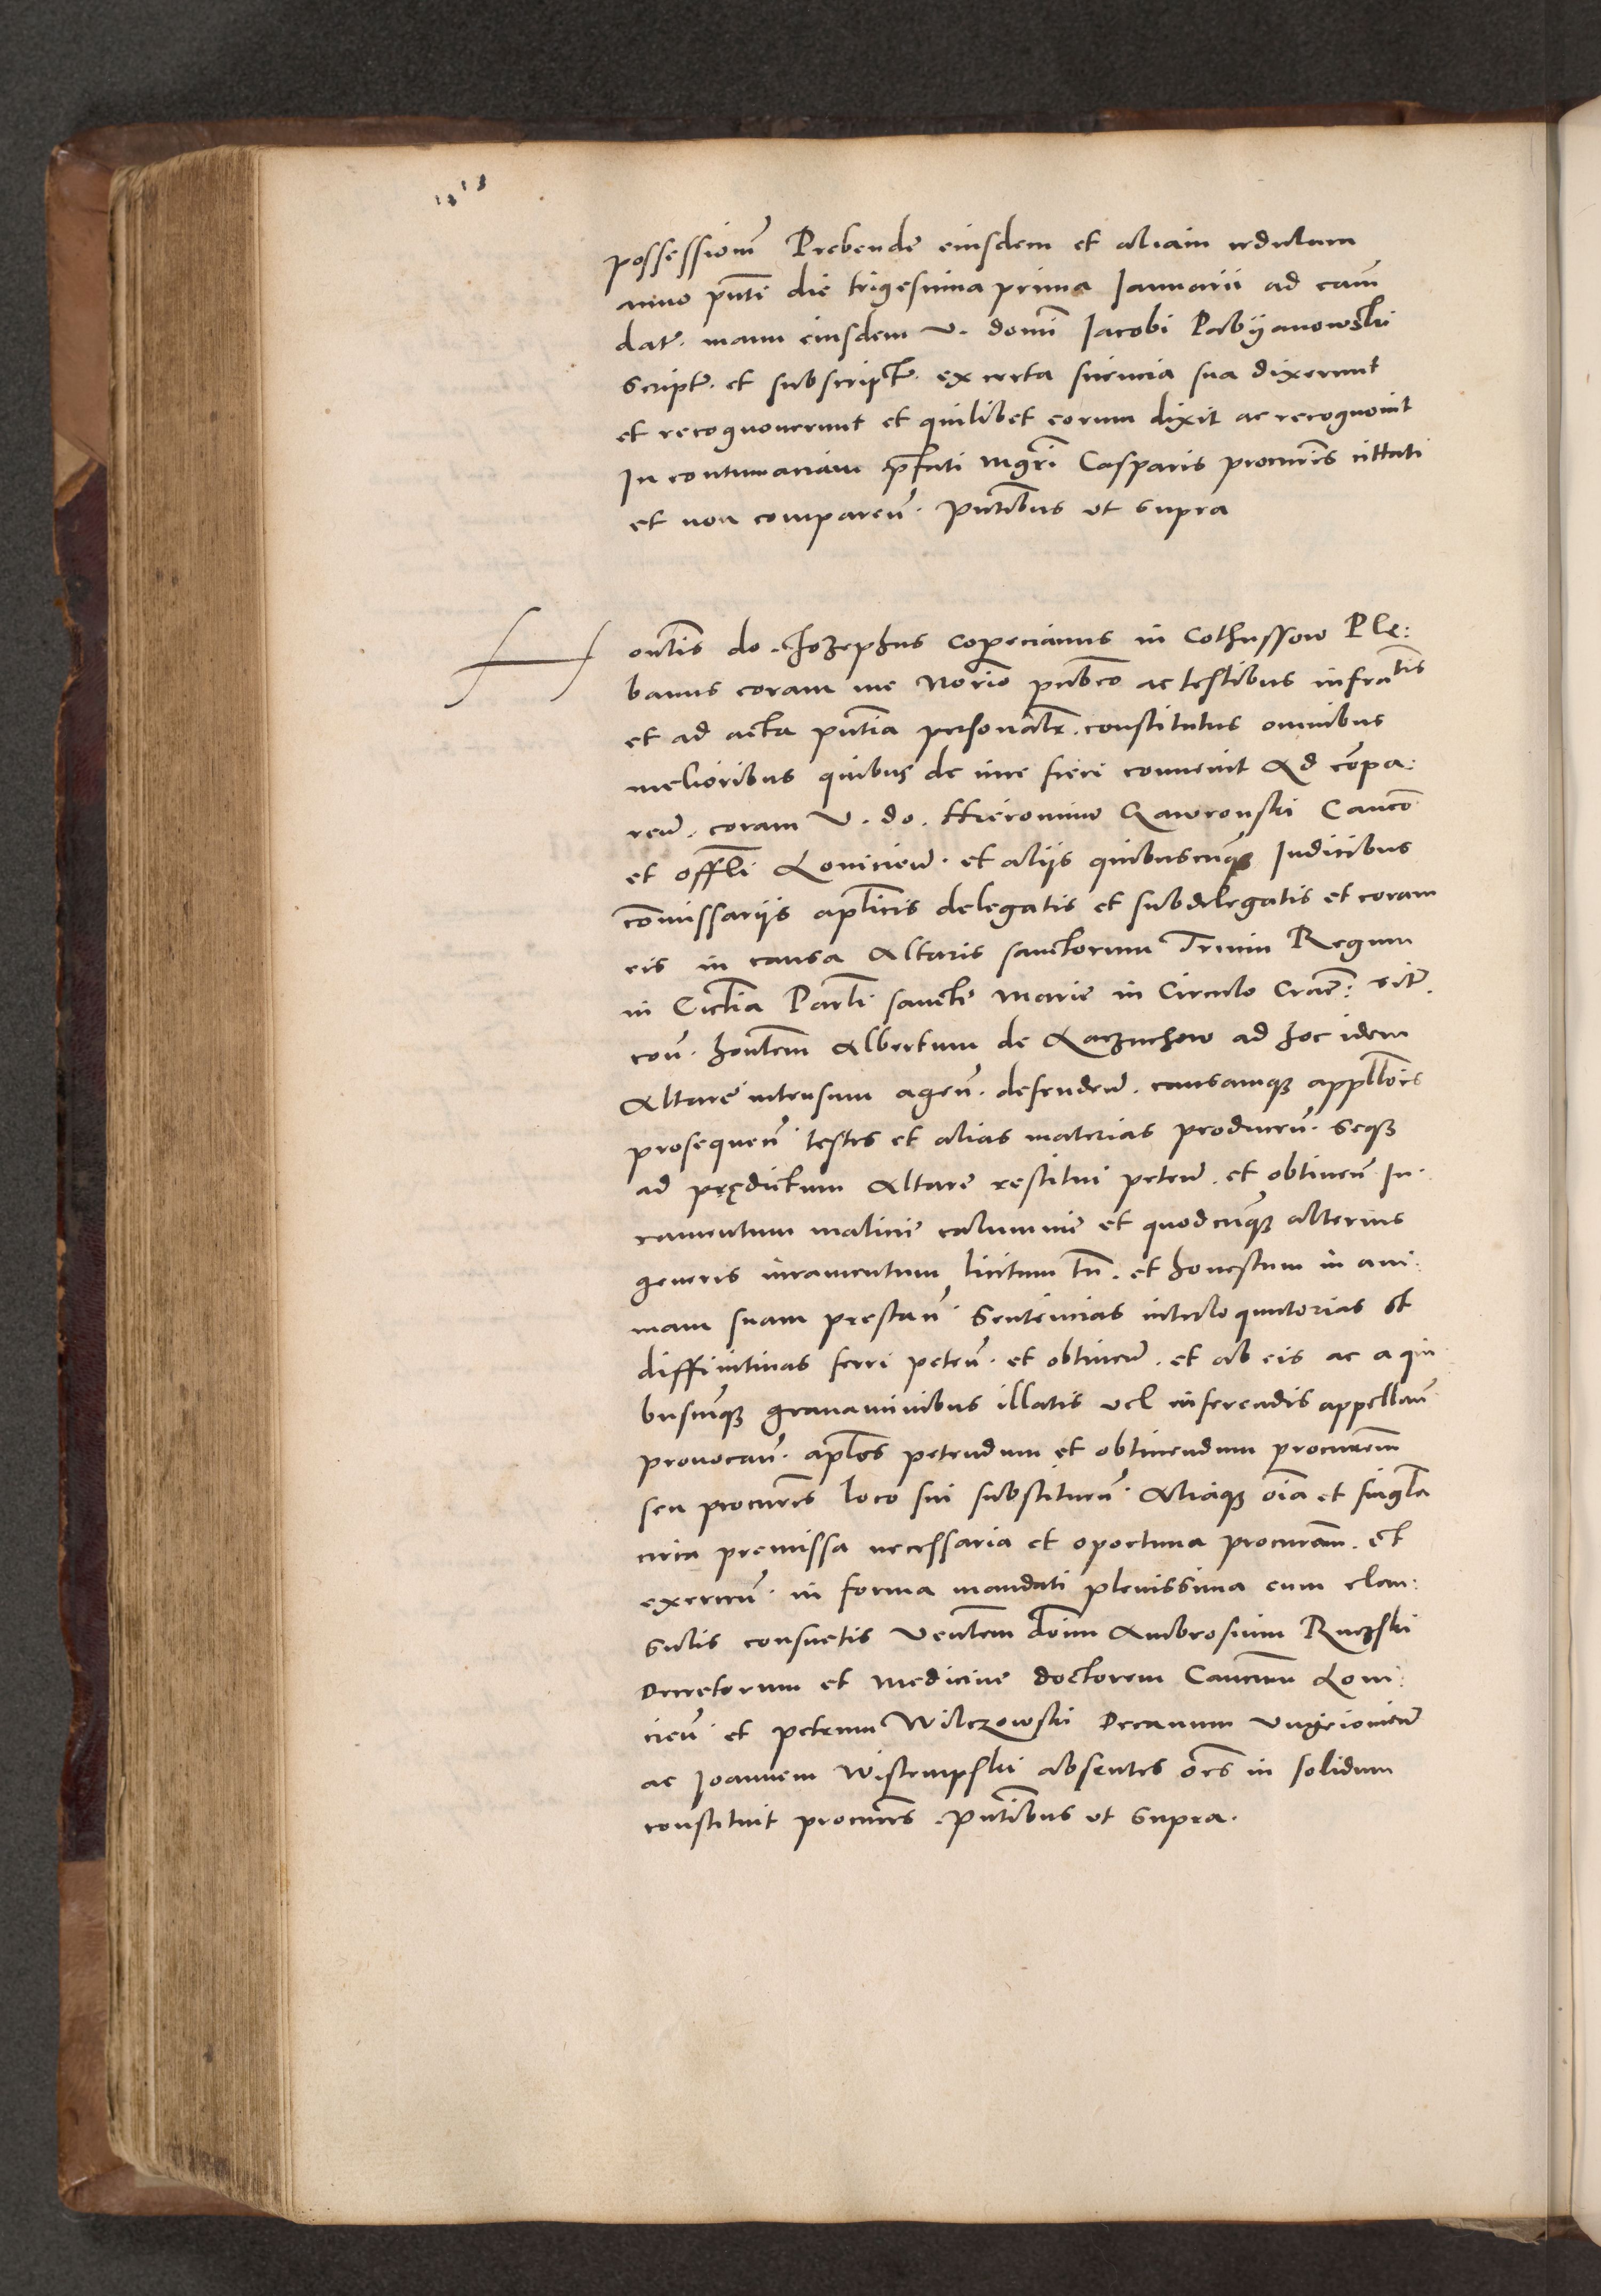 possessionem̃ Prebende eiusdem et aliam cedulam
anno pñte die trigesima prima Ianuarii ad eam̃
dat. manu eiusdem V. domi Iacobi Pabyanowski
Script. et subscript. ex certa sciencia sua dixerunt
et recognouerunt et quilibet eorum dixit ac recognouit
In contumaciam p̃fati mgri Casparis procur̃is cittati
et non compareñ. pñtibus vt supra
Honlis do. Iozephus copecianus in Cothussow Ple:
banus coram me Norio pubco ac testibus infratis
et ad acta pñtia personalr. constitutus omnibus
melioribus quibus de iure fieri conuenit Ad cõpa:
reñ. coram V. do. Hieronimo Gawronski Canco
et offli Louicieñ. et aliis quibuscũq Iudicibus
cõmissariis aplicis delegatis et subdelegatis et coram
eis in causa Altaris sanctorum Trium Regum
in Ecclia Parli sancte Marie in Circulo Crac: sit.
con. honlem Albertum de
Altare intrusum ageñ. defendeñ. causamq appllois
prosequeñ testes et alias materias produceñ. Seq
ad prędictum Altare restitui peteñ. et obtineñ Iu.
ramentum malicie calumnie et quodcũq alterius
generis iuramentum licitum tñ. et honestum in ani:
mam suam prestañ. Sentencias interloquutorias et
diffinitiuas ferri peteñ. et obtineñ. et ab eis ac a qui
buscũq grauaminibus illatis vel inferendis appellañ
prouocañ. aplos petendum et obtinendum procurem
seu procures loco sui substitueñ. Aliaq oĩa et singla
circa premissa necessaria et oportuna procurañ. et
exerceñ. in forma mandati plenissima cum clau:
sulis consuetis Venlem dom Ambrosium Ruczski
Decretorum et medicine doctorem Cancum Loui:
cieñ. et petrum Wilczowski Decanum Vngeiouieñ
ac Ioannem absentes oẽs in solidum
constituit procures. pñtibus vt supra.